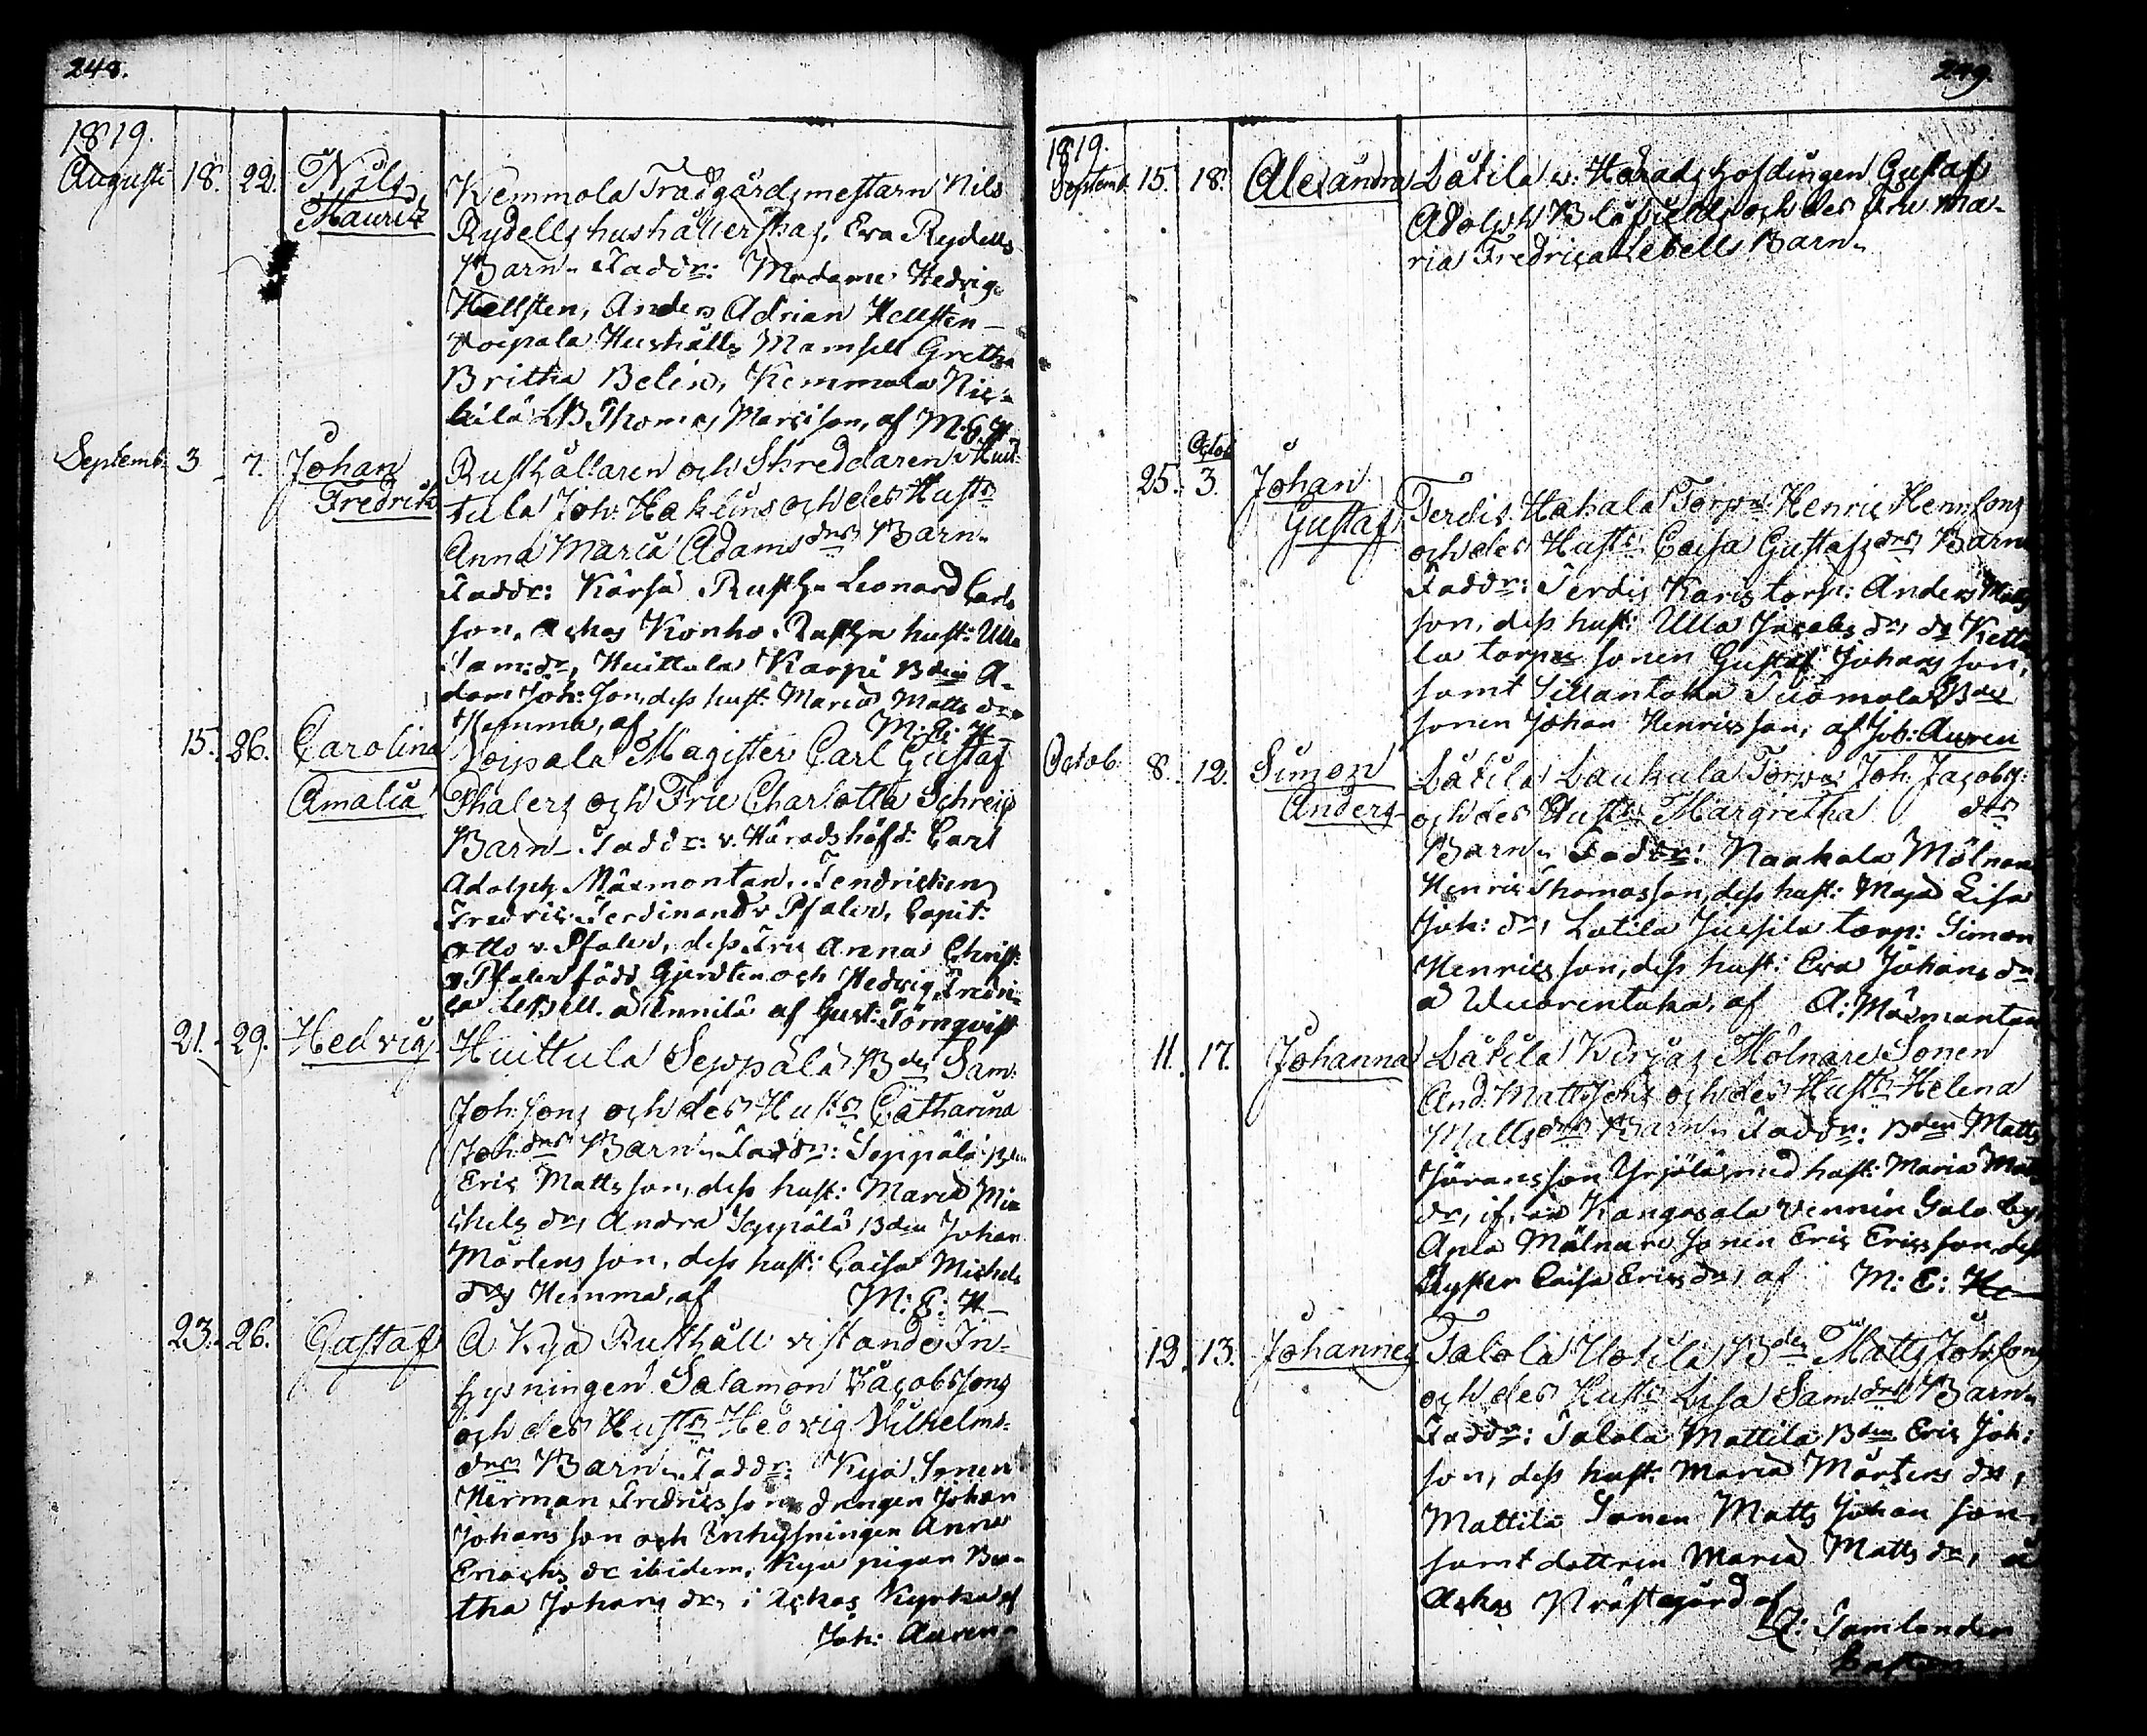 248.
1819.
Augusti 18. 22. Nils Kemmola Trädgårdsmestarn Nils
Mauritz Rydells hushållerskas, Eva Rydells
Barn. Faddr: Madame Hedvig
Hellsten, Anders Adrian Hellsten
Voipala Hushålls Mamsell Gretha
Britha Belin, Kemmola Nic-
kilä LB Thomas Marcison, af M. E. H
Septemb. 3 7. Johan Rusthållaren och Skreddaren i Huit-
Fredrik tula Joh: Haklins och des Hustr
Anna Maria Adams dr Barn.
Faddr: Kärsä Rusth. Leonard Carls
son, Ackas Konho Rusth hust: Ulla
Sam: dr, Huittula Karpi Bden A-
dam Joh: Son, dess hust. Maria Matts dr
Hemma, af M: E: H
15. 26. Carolina Voipala Magister Carl Gustaf
Amalia Thalers och Fru Charlotta Schreij
Barn. Faddr: v. Häradshöfd: Carl
Adolph Mäxmontan, Fendricken
Fredric Ferdinand v Pfaler, Capit:
Otto v. Pfaler, dess Fru Anna Christ:
v Pfaler född Gjerdten och Hedvig Fredri-
ca LeBell. a Annila af Gust: Törnqvist
21. 29. Hedvig Huittula Seppälä Bdes Sam:
Joh: Sons och des Hustr Catharina
Joh: drs Barn. Faddr: Seppälä Bden
Eric Matts son, dess hust: Maria Mic
chels dr, Andra Seppälä Bden Johan
Mårtens son, dess hust: Caisa Michels
dr, Hemma, af M: E: H
23. 26. Gustaf A Kyä Rusthåll vistande In-
hysningen Salamon Jacobssons
och des Hustr Hedvig Vilhelms-
drs Barn. Faddr: Kyä Sonen
Herman Fredrics son, drengen Johan
Johans son och Inhysningen Anna
Erichs dr ibidem, Kyä pigan Bri-
tha Johans dr, i Ackas Kyrka af
Joh: Auren
249.
1819.
Septemb. 15. 18. Alexandra Låtila v. Häradshöfdingen Gustaf
Adolph Blåfields och des Fru Ma-
ria Fredrica Lebells Barn.
Octob
25. 3. Johan Ferdis Hahala Torpn Henric Henr: Sons
Gustaf och des Hustr Caisa Gustafs drs Barn
Faddr: Ferdis Karis torp: Anders Matts
son, dess hust: Ulla Jacobs dr, Ketto
la torpn sonen Gustaf Johans son,
samt Sillantaka Tuomola Bdes
sonen Johan Henrics son, af Joh: Auren
Octob. 8. 12. Simon Låtila Laukula Torpn Joh: Jacobs:
Anders och des Hustr: Margretha drs
Barn. Faddr: Naakala Mölnaren
Henric Thomasson, dess hust: Maja Lisa
Joh: dr, Lotila Jussila torp: Simon
Henrics son, dess hust: Eva Johans dr
a Wuorentaka, af A: Mäxmontan
11. 17. Johanna Låtila Kirjas Mölnare Sonen
And: Matts Sons och des Hustr Helena
Matts drs Barn. Faddr: Bden Matts
Göransson Yrjölä med hust: Maria Matts
dr, Kangasala Vennin Salo by
Apia Mölnare Sonen Eric Ericsson, dess
Syster Caisa Erics dr, af M: E: H
12. 13. Johannes Salola Uotila Bdes Matts Joh: Sons
och des Hustr Lisa Sam: drs Barn.
Faddr: Salola Mattila Bden Eric Joh:
son, dess hust: Maria Mårtens dr,
Mattila Sonen Matts Johan son,
samt dottren Maria Matts dr, a
Ackas Prästegård af
Z: Samlander